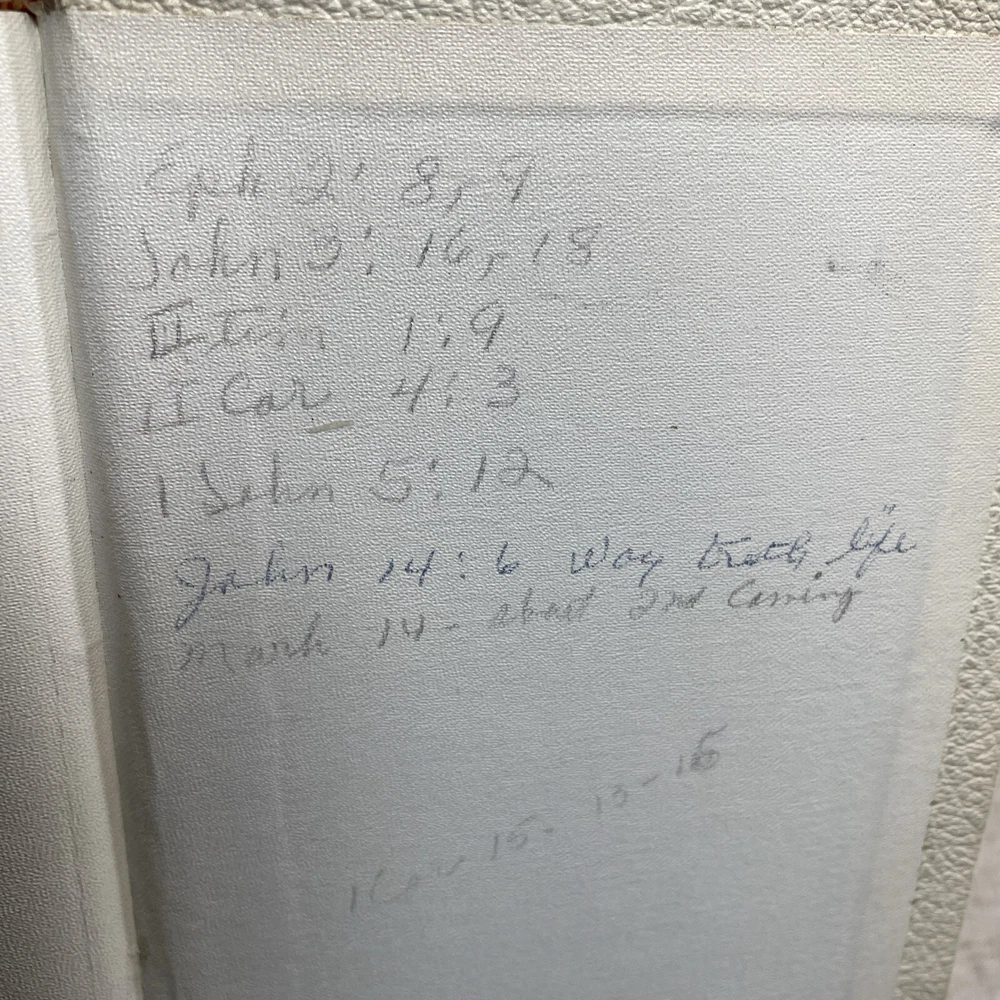 Eph 2: 8, 9
John 3: 16, 18
II tim 1:9
II Cor 4:3
1 John 5:12
John 14:6 Way truth life"
Mark 14 - about 2nd Coming
1 Cor 15- 13-15